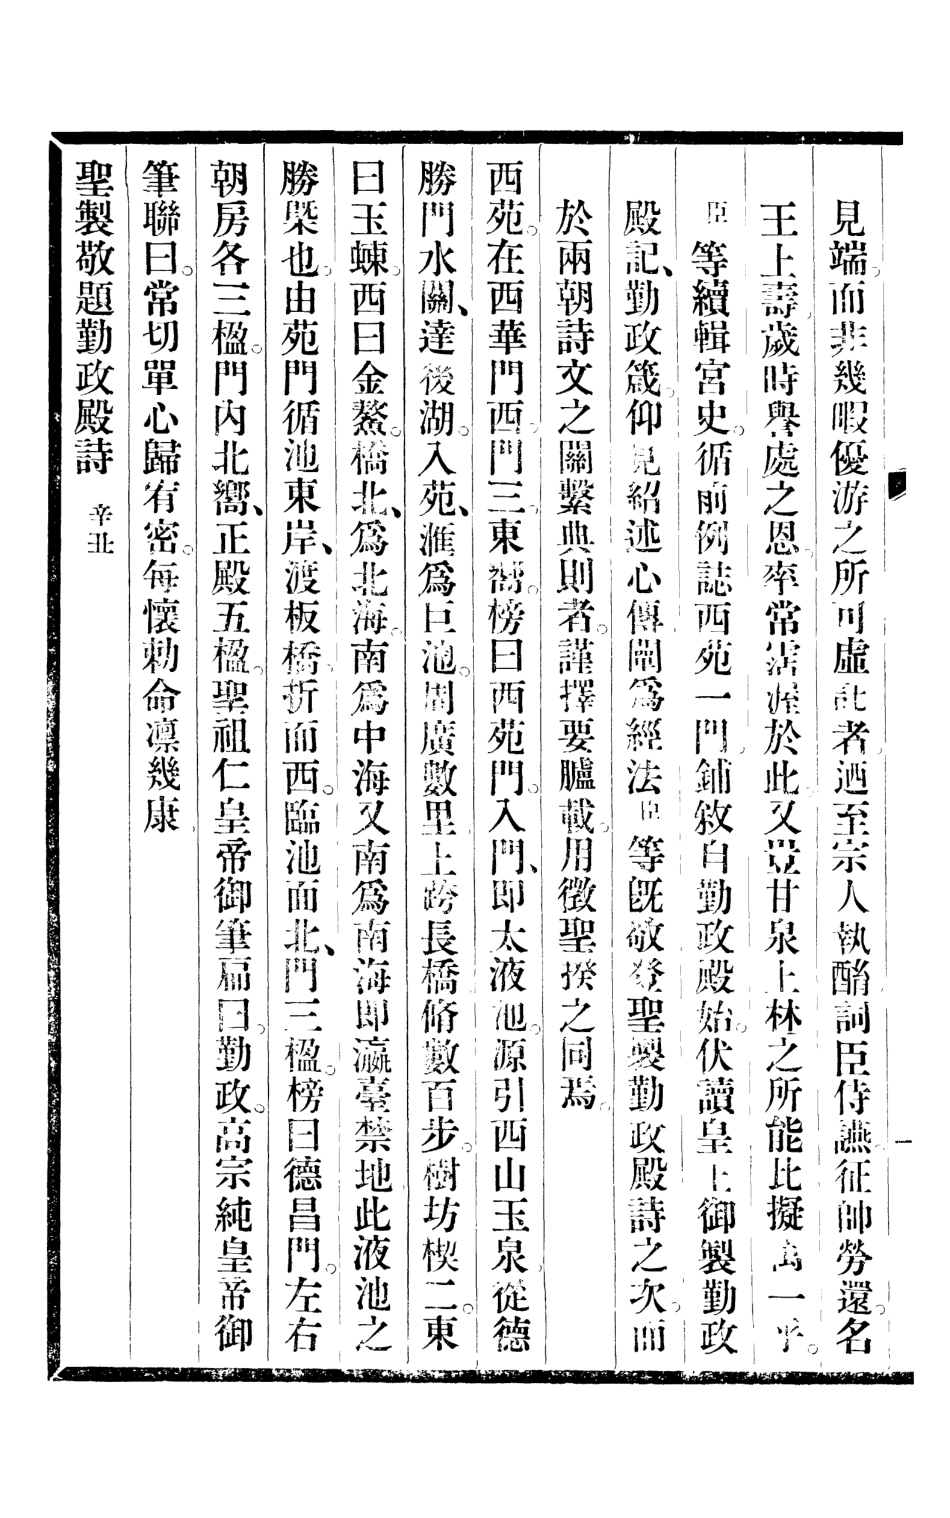 見端。而非幾暇優游之所可虛託者。迺至宗人執酳。詞臣侍讌。征帥勞還。名
王上壽。歲時譽處之恩。率常霑渥於此。又豈甘泉上林之所能比擬萬一乎。
臣等續輯宮史。循前例誌西苑一門。鋪敘自勤政殿始。伏讀皇上御製勤政
殿記、勤政箴。仰見紹述心傳。闡爲經法。臣等既敬登聖製勤政殿詩之次。而
於兩朝詩文之關繫典則者。謹擇要臚載。用徵聖揆之同焉。
西苑。在西華門西。門三。東嚮。榜曰西苑門。入門、即太液池。源引西山玉泉。從德
勝門水關、達後湖。入苑、滙爲巨池。周廣數里。上跨長橋。脩數百步。樹坊楔二。東
曰玉蝀。西曰金鰲。橋北、爲北海。南爲中海。又南爲南海。即瀛臺禁地。此液池之
勝槩也。由苑門循池東岸、渡板橋。折而西。臨池面北、門三楹。榜曰德昌門。左右
朝房各三楹。門內北嚮、正殿五楹。聖祖仁皇帝御筆扁曰。勤政。高宗純皇帝御
筆聯曰。常切單心歸宥密。每懷勅命凛幾康。
聖製敬題勤政殿詩 辛丑
一